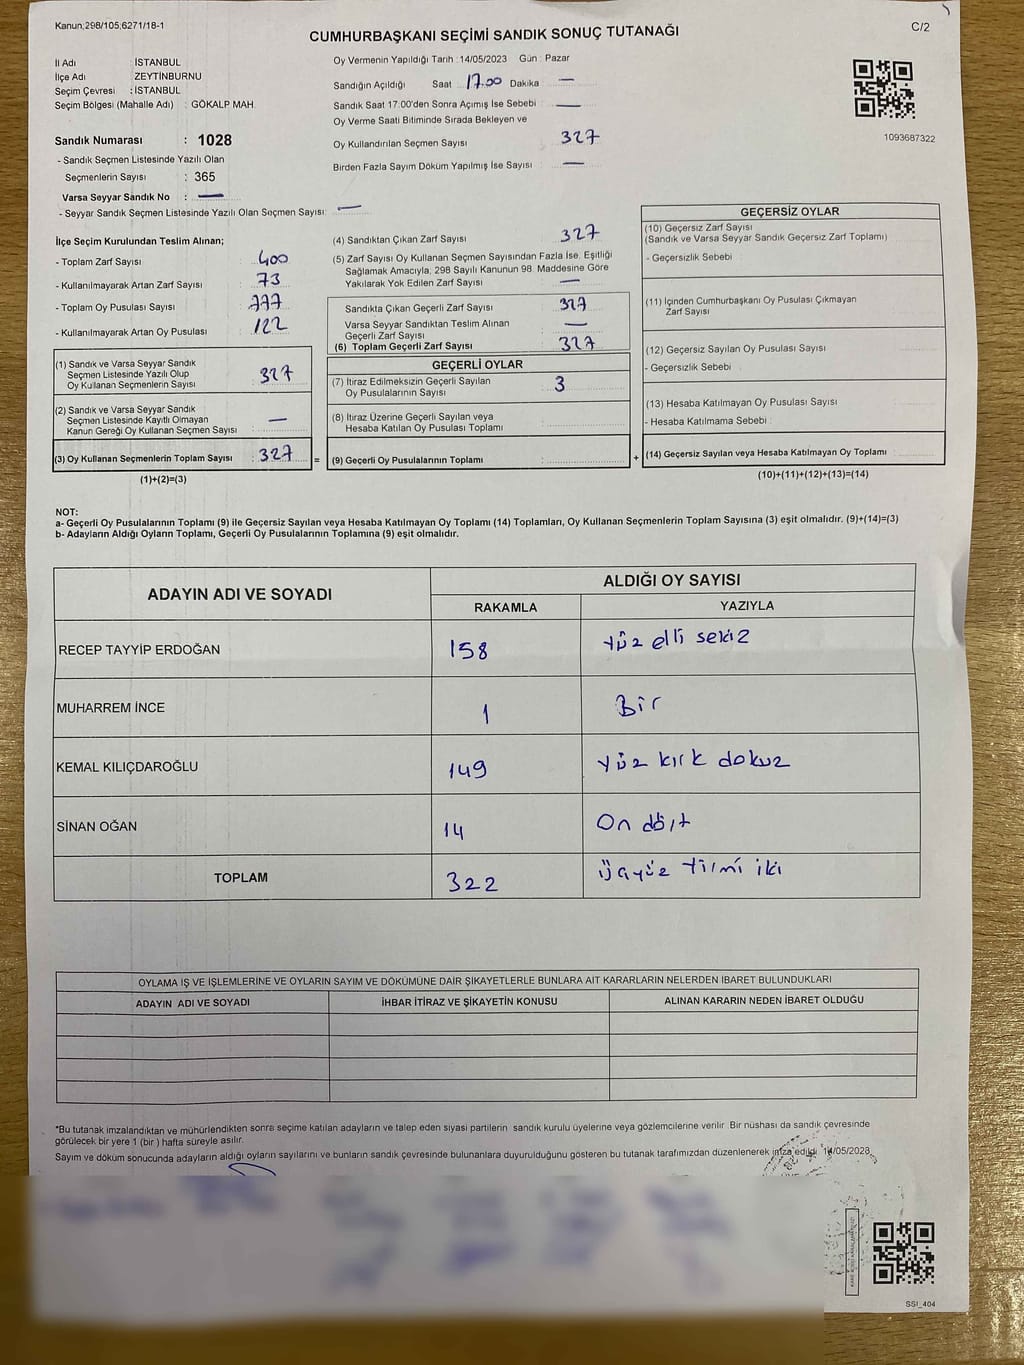 Kanun;298/105,6271/18-1
C/2
CUMHURBAŞKANI SEÇİMİ SANDIK SONUÇ TUTANAĞI
İl Adı : İSTANBUL
İlçe Adı : ZEYTİNBURNU
Seçim Çevresi : İSTANBUL
Seçim Bölgesi (Mahalle Adı) : GÖKALP MAH.
Sandık Numarası : 1028
- Sandık Seçmen Listesinde Yazılı Olan
Seçmenlerin Sayısı : 365
Varsa Seyyar Sandık No : —
- Seyyar Sandık Seçmen Listesinde Yazılı Olan Seçmen Sayısı: —
Oy Vermenin Yapıldığı Tarih :14/05/2023 Gün : Pazar
Sandığın Açıldığı Saat 17.00 Dakika —
Sandık Saat 17:00'den Sonra Açımış İse Sebebi : —
Oy Verme Saati Bitiminde Sırada Bekleyen ve
Oy Kullandırılan Seçmen Sayısı : 327
Birden Fazla Sayım Döküm Yapılmış İse Sayısı : —
1093687322
İlçe Seçim Kurulundan Teslim Alınan;
- Toplam Zarf Sayısı : 400
- Kullanılmayarak Artan Zarf Sayısı : 73
- Toplam Oy Pusulası Sayısı : 777
- Kullanılmayarak Artan Oy Pusulası : 122
(1) Sandık ve Varsa Seyyar Sandık
Seçmen Listesinde Yazılı Olup
Oy Kullanan Seçmenlerin Sayısı : 327
(2) Sandık ve Varsa Seyyar Sandık
Seçmen Listesinde Kayıtlı Olmayan
Kanun Gereği Oy Kullanan Seçmen Sayısı : —
(3) Oy Kullanan Seçmenlerin Toplam Sayısı : 327
(1)+(2)=(3)
=
(4) Sandıktan Çıkan Zarf Sayısı : 327
(5) Zarf Sayısı Oy Kullanan Seçmen Sayısından Fazla İse, Eşitliği
Sağlamak Amacıyla, 298 Sayılı Kanunun 98. Maddesine Göre
Yakılarak Yok Edilen Zarf Sayısı : —
Sandıkta Çıkan Geçerli Zarf Sayısı : 327
Varsa Seyyar Sandıktan Teslim Alınan
Geçerli Zarf Sayısı : —
(6) Toplam Geçerli Zarf Sayısı : 327
GEÇERLİ OYLAR
(7) İtiraz Edilmeksizin Geçerli Sayılan
Oy Pusulalarının Sayısı : 3
(8) İtiraz Üzerine Geçerli Sayılan veya
Hesaba Katılan Oy Pusulası Toplamı :
(9) Geçerli Oy Pusulalarının Toplamı :
+
GEÇERSİZ OYLAR
(10) Geçersiz Zarf Sayısı
(Sandık ve Varsa Seyyar Sandık Geçersiz Zarf Toplamı)
- Geçersizlik Sebebi :
(11) İçinden Cumhurbaşkanı Oy Pusulası Çıkmayan
Zarf Sayısı :
(12) Geçersiz Sayılan Oy Pusulası Sayısı :
- Geçersizlik Sebebi :
(13) Hesaba Katılmayan Oy Pusulası Sayısı :
- Hesaba Katılmama Sebebi :
(14) Geçersiz Sayılan veya Hesaba Katılmayan Oy Toplamı :
(10)+(11)+(12)+(13)=(14)
NOT:
a- Geçerli Oy Pusulalarının Toplamı (9) ile Geçersiz Sayılan veya Hesaba Katılmayan Oy Toplamı (14) Toplamları, Oy Kullanan Seçmenlerin Toplam Sayısına (3) eşit olmalıdır. (9)+(14)=(3)
b- Adayların Aldığı Oyların Toplamı, Geçerli Oy Pusulalarının Toplamına (9) eşit olmalıdır.
ADAYIN ADI VE SOYADI
ALDIĞI OY SAYISI
RAKAMLA YAZIYLA
RECEP TAYYİP ERDOĞAN 158 Yüz elli sekiz
MUHARREM İNCE 1 Bir
KEMAL KILIÇDAROĞLU 149 Yüz kırk dokuz
SİNAN OĞAN 14 On dört
TOPLAM 322 Üçyüz Yirmi iki
OYLAMA İŞ VE İŞLEMLERİNE VE OYLARIN SAYIM VE DÖKÜMÜNE DAİR ŞİKAYETLERLE BUNLARA AİT KARARLARIN NELERDEN İBARET BULUNDUKLARI
ADAYIN ADI VE SOYADI İHBAR İTİRAZ VE ŞİKAYETİN KONUSU ALINAN KARARIN NEDEN İBARET OLDUĞU
*Bu tutanak imzalandıktan ve mühürlendikten sonra seçime katılan adayların ve talep eden siyasi partilerin sandık kurulu üyelerine veya gözlemcilerine verilir. Bir nüshası da sandık çevresinde
görülecek bir yere 1 (bir) hafta süreyle asılır.
Sayım ve döküm sonucunda adayların aldığı oyların sayılarını ve bunların sandık çevresinde bulunanlara duyurulduğunu gösteren bu tutanak tarafımızdan düzenlenerek imza edildi. 14/05/2023
SSI_404